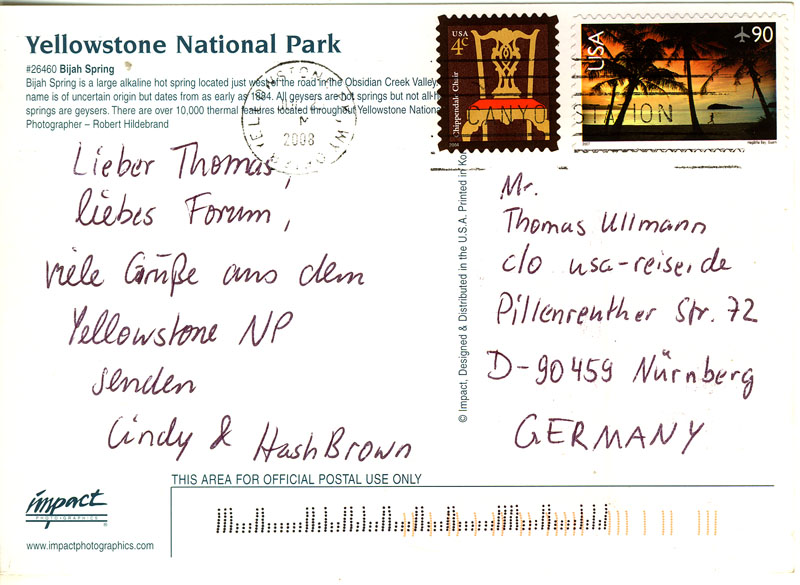 Yellowstone National Park
#26460 Bijah Spring
Bijah Spring is a large alkaline hot spring located just west of the road in the Obsidian Creek Valley.
name is of uncertain origin but dates from as early as 1894. All geysers are hot springs but not all
springs are geysers. There are over 10,000 thermal features located throughout Yellowstone
Photographer – Robert Hildebrand
USA
4c
Chippendale Chair
2008
USA
90
CANYO STATION
Lieber Thomas,
liebes Forum,
viele Grüße aus dem
Yellowstone NP
senden
Cindy & HashBrown
© Impact, Designed & Distributed in the U.S.A. Printed in
Mr.
Thomas Ullmann
c/o usa-reise.de
Pillenreuther Str. 72
D-90459 Nürnberg
GERMANY
THIS AREA FOR OFFICIAL POSTAL USE ONLY
impact
PHOTOGRAPHICS
www.impactphotographics.com